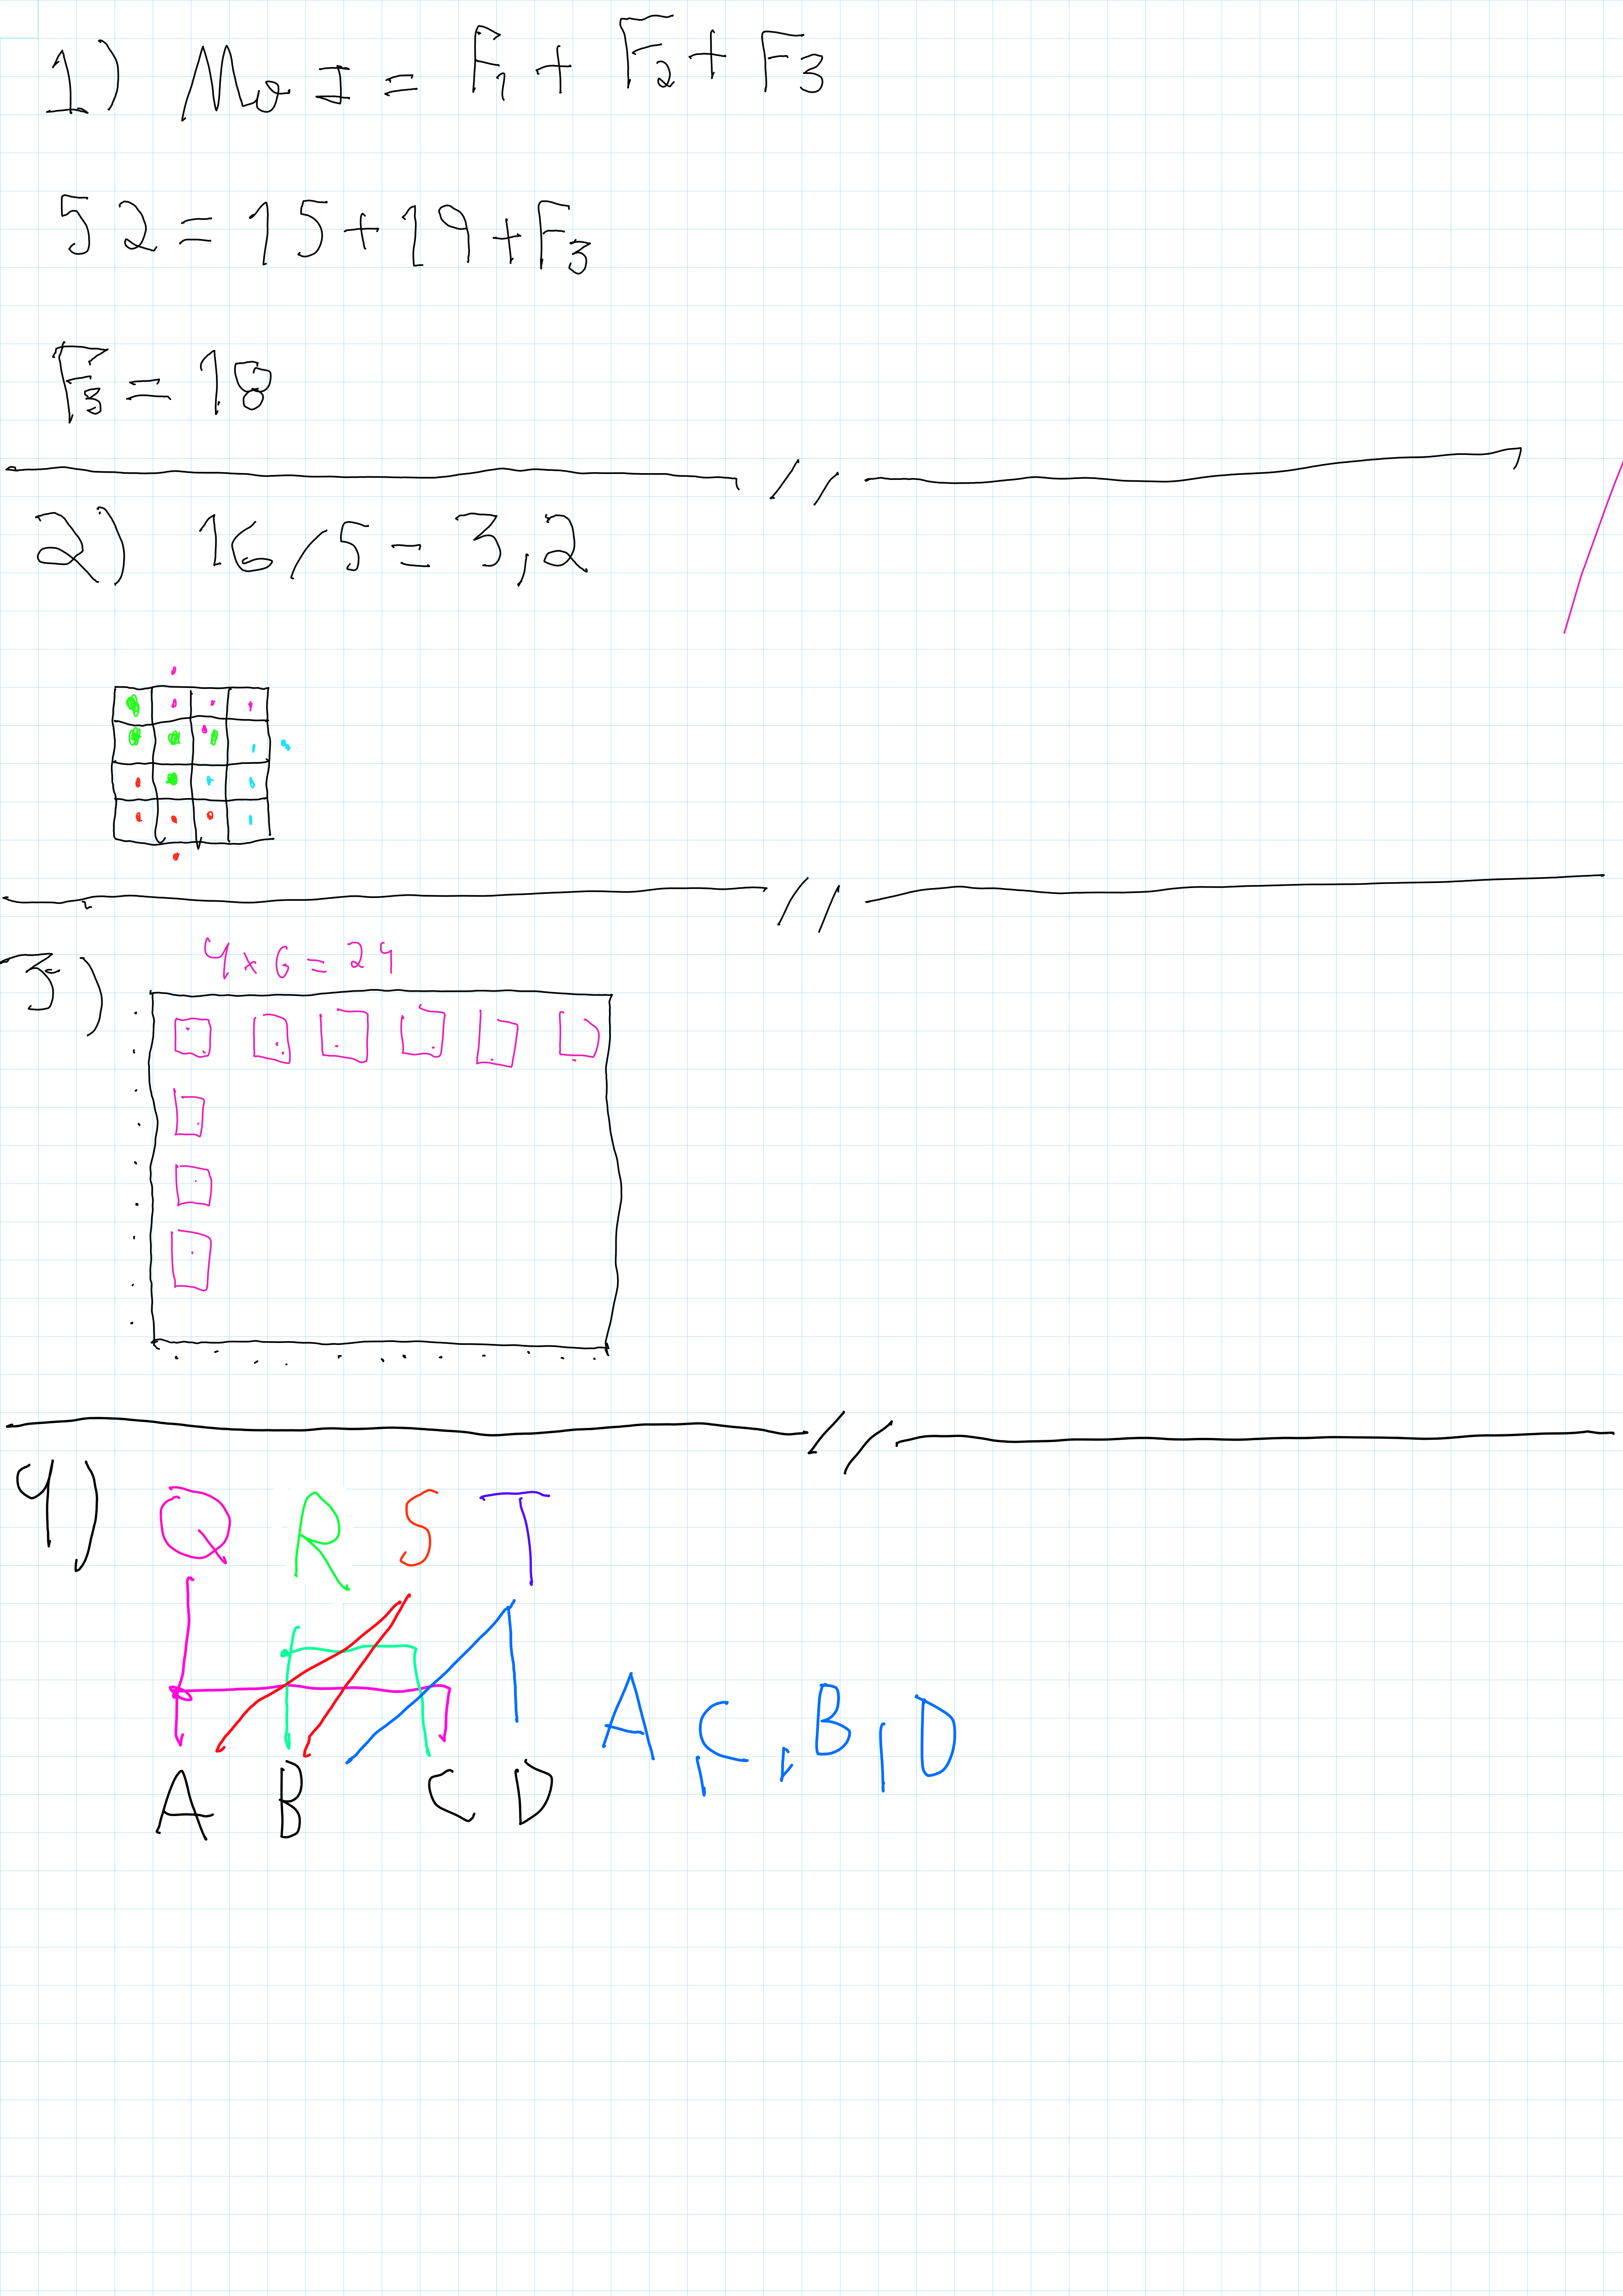 1) Mo I = F1 + F2 + F3
52 = 15 + 19 + F3
F3 = 18
2) 16 / 5 = 3,2
3) 4 x 6 = 24
4) Q R S T
A, C, B, D
A B C D